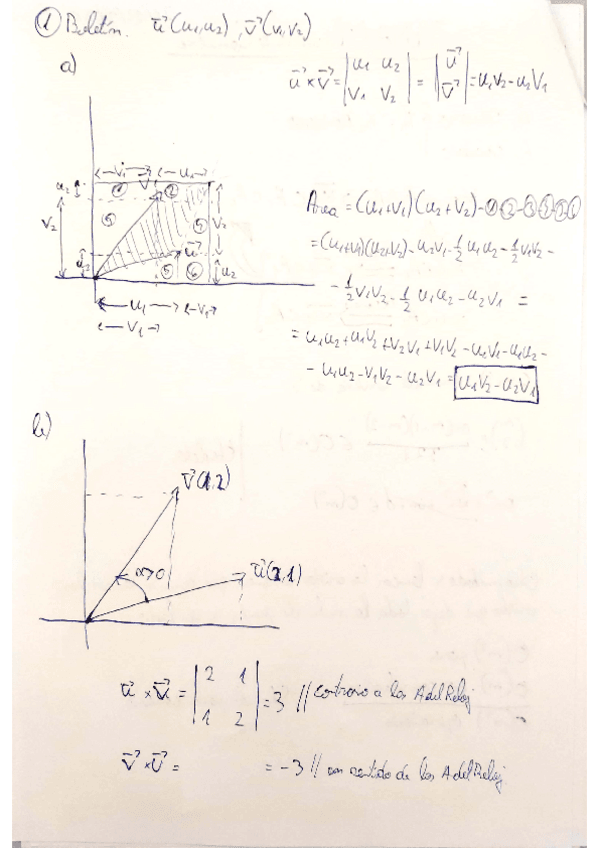 ① Boletín. u⃗(u₁,u₂), v⃗(v₁,v₂)
a)
u⃗ × v⃗ = |u₁ u₂ / v₁ v₂| = |u⃗ / v⃗| = u₁v₂ - u₂v₁
v₁ u₁
u₂ v⃗ ① ②
v₂ ③ ⑤ v₂
u⃗
u₂ ⑤ ⑥ u₂
u₁ v₁
v₁
Area = (u₁+v₁)(u₂+v₂)-①-②-③
= (u₁+v₁)(u₂+v₂) - u₂v₁ - ½ u₁u₂ - ½ v₁v₂ -
- ½ v₁v₂ - ½ u₁u₂ - u₂v₁ =
= u₁u₂ + u₁v₂ + v₂v₁ + v₁v₂ - u₂v₁ - u₁u₂ -
- u₁u₂ - v₁v₂ - u₂v₁ = u₁v₂ - u₂v₁
b)
v⃗(1,2)
α>0
u⃗(2,1)
u⃗ × v⃗ = |2 1 / 1 2| = 3 // contrario a las A del Reloj
v⃗ × u⃗ = = -3 // en sentido de las A del Reloj